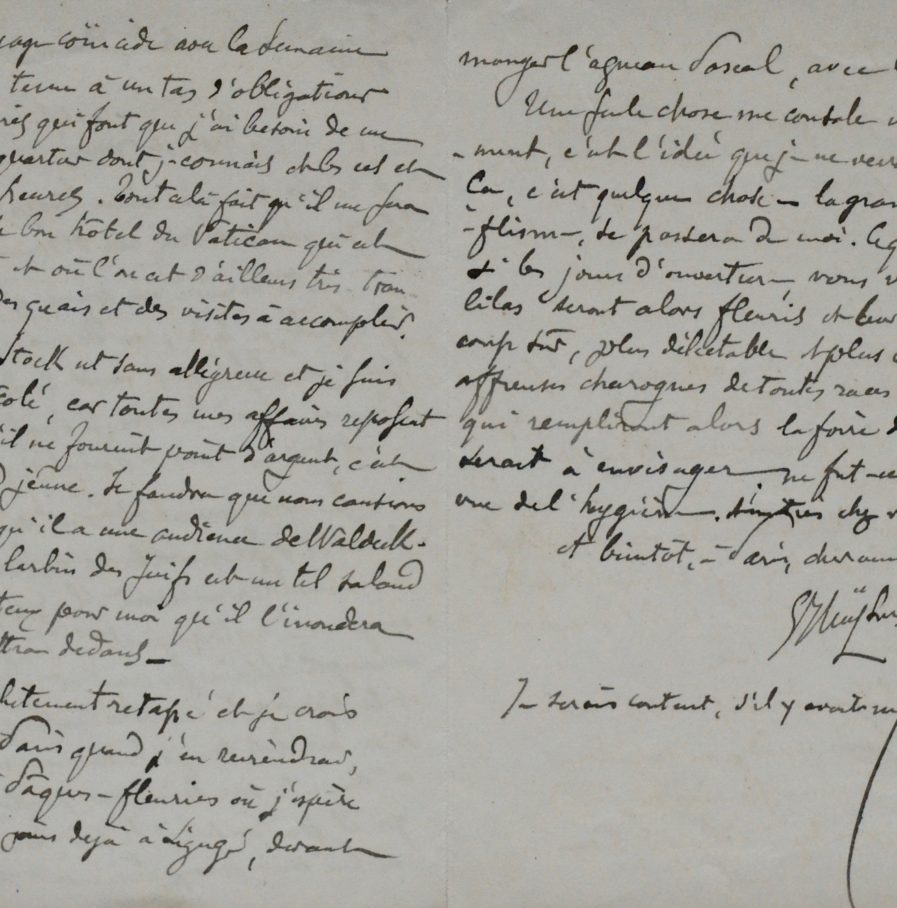 coïncide avec la Semaine
tenu à un tas d'obligations
qui font que j'ai besoin de un
quartier dont je connais et les us et
heures. Tout cela fait qu'il me fera
bon hôtel du Vatican qui est
et où l'on est d'ailleurs très tran-
des quais et des visites à accomplir.
Stock est sans allégresse et je suis
car toutes mes affaires reposent
il ne fournit point d'argent, c'est
jeûne. Il faudra que nous causions
qu'il a une audience de Waldeck-
larbin des Juifs est un tel salaud
pour moi qu'il l'inondera
dedans —
retapé et je crois
Paris quand j'en reviendrai,
Pâques-fleuries où j'espère
déjà à Ligugé, devant
manger l'agneau Pascal, avec
Une seule chose me console
-ment, c'est l'idée que je ne verrai
Ça, c'est quelque chose — la
-flisme, se passera de moi.
si les jours d'ouverture vous
lilas seront alors fleuris et leur
coup sûr, plus délectable et plus
affreuses charognes de toutes races
qui rempliront alors la foire
serait à envisager ne fut-ce
vue de l'hygiène. chez
et bientôt, à Paris, cher ami
Huysmans
Je serais content, s'il y avait